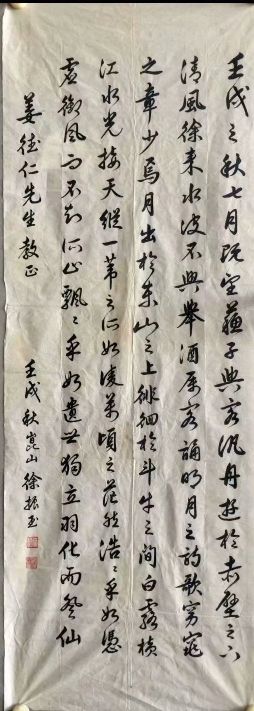 壬戌之秋七月既望蘇子與客汎舟遊於赤壁之下
清風徐来水波不興舉酒属客誦明月之詩歌窈窕
之章少焉月出於東山之上徘徊於斗牛之间白露横
江水光接天縱一苇之所如凌萬頃之茫然浩〻乎如憑
虚御風而不知所止飄〻乎如遺世獨立羽化而登仙
姜德仁先生教正
壬戌秋崑山徐振玉